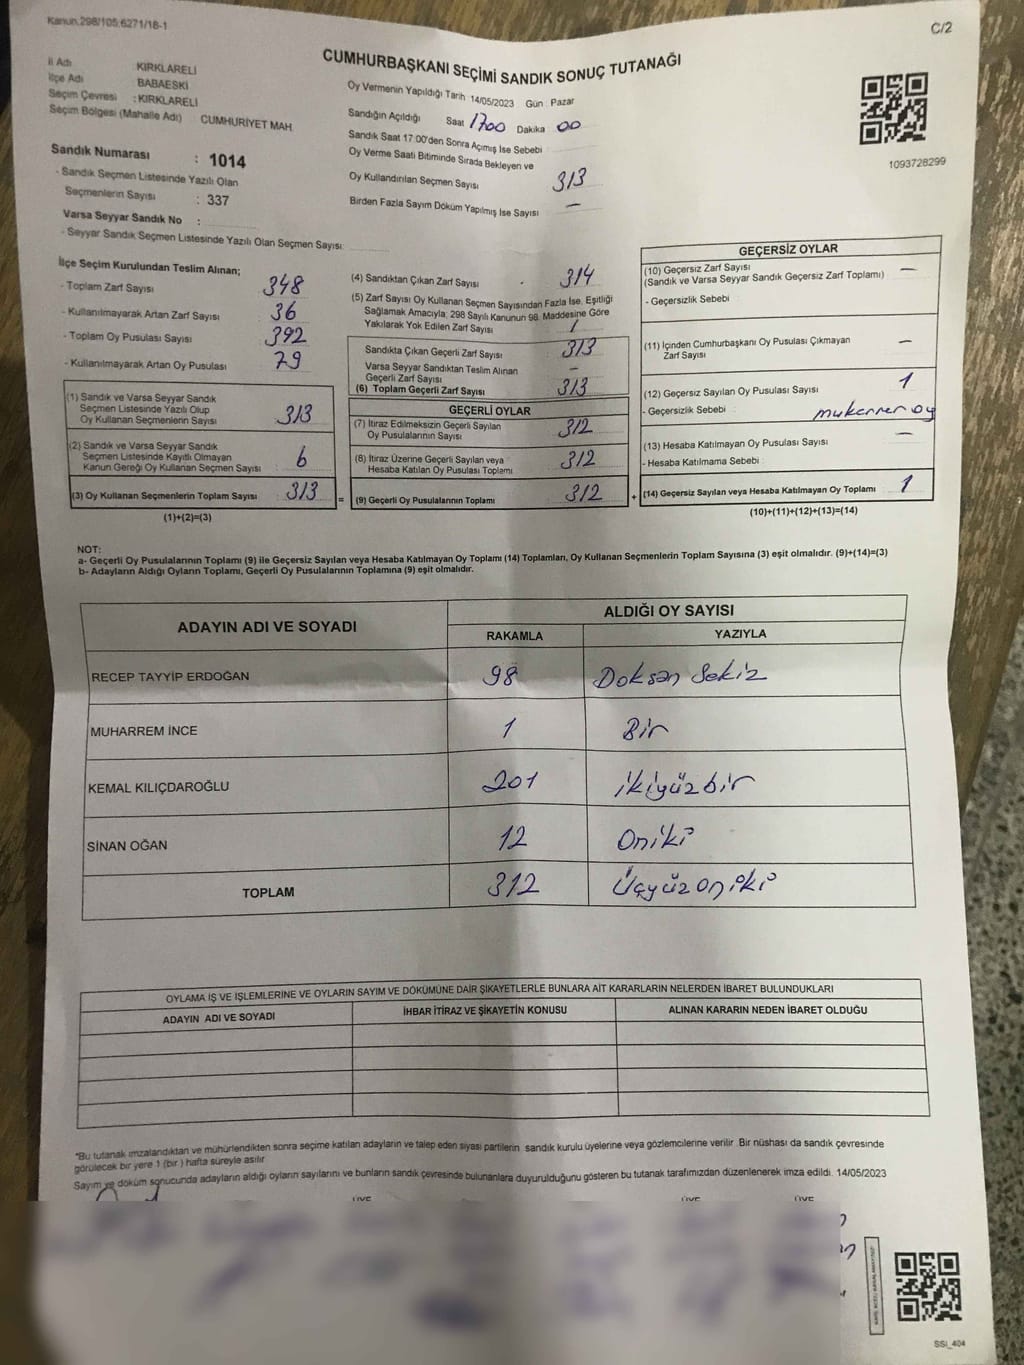 Kanun.298/105;6271/18-1
C/2
CUMHURBAŞKANI SEÇİMİ SANDIK SONUÇ TUTANAĞI
İl Adı KIRKLARELİ
İlçe Adı BABAESKİ
Seçim Çevresi : KIRKLARELİ
Seçim Bölgesi (Mahalle Adı) CUMHURİYET MAH.
Sandık Numarası : 1014
- Sandık Seçmen Listesinde Yazılı Olan
Seçmenlerin Sayısı : 337
Varsa Seyyar Sandık No :
- Seyyar Sandık Seçmen Listesinde Yazılı Olan Seçmen Sayısı:
Oy Vermenin Yapıldığı Tarih 14/05/2023 Gün Pazar
Sandığın Açıldığı Saat 1700 Dakika 00
Sandık Saat 17:00'den Sonra Açımış İse Sebebi
Oy Verme Saati Bitiminde Sırada Bekleyen ve
Oy Kullandırılan Seçmen Sayısı 313
Birden Fazla Sayım Döküm Yapılmış İse Sayısı —
1093728299
İlçe Seçim Kurulundan Teslim Alınan;
- Toplam Zarf Sayısı 348
- Kullanılmayarak Artan Zarf Sayısı 36
- Toplam Oy Pusulası Sayısı 392
- Kullanılmayarak Artan Oy Pusulası 79
(1) Sandık ve Varsa Seyyar Sandık
Seçmen Listesinde Yazılı Olup
Oy Kullanan Seçmenlerin Sayısı 313
(2) Sandık ve Varsa Seyyar Sandık
Seçmen Listesinde Kayıtlı Olmayan
Kanun Gereği Oy Kullanan Seçmen Sayısı 6
(3) Oy Kullanan Seçmenlerin Toplam Sayısı 313 =
(1)+(2)=(3)
(4) Sandıktan Çıkan Zarf Sayısı 314
(5) Zarf Sayısı Oy Kullanan Seçmen Sayısından Fazla İse, Eşitliği
Sağlamak Amacıyla; 298 Sayılı Kanunun 98. Maddesine Göre
Yakılarak Yok Edilen Zarf Sayısı 1
Sandıkta Çıkan Geçerli Zarf Sayısı 313
Varsa Seyyar Sandıktan Teslim Alınan
Geçerli Zarf Sayısı —
(6) Toplam Geçerli Zarf Sayısı 313
GEÇERLİ OYLAR
(7) İtiraz Edilmeksizin Geçerli Sayılan
Oy Pusulalarının Sayısı 312
(8) İtiraz Üzerine Geçerli Sayılan veya
Hesaba Katılan Oy Pusulası Toplamı 312
(9) Geçerli Oy Pusulalarının Toplamı 312 +
GEÇERSİZ OYLAR
(10) Geçersiz Zarf Sayısı —
(Sandık ve Varsa Seyyar Sandık Geçersiz Zarf Toplamı)
- Geçersizlik Sebebi
(11) İçinden Cumhurbaşkanı Oy Pusulası Çıkmayan
Zarf Sayısı —
(12) Geçersiz Sayılan Oy Pusulası Sayısı 1
- Geçersizlik Sebebi mukerrer oy
(13) Hesaba Katılmayan Oy Pusulası Sayısı —
- Hesaba Katılmama Sebebi :
(14) Geçersiz Sayılan veya Hesaba Katılmayan Oy Toplamı 1
(10)+(11)+(12)+(13)=(14)
NOT:
a- Geçerli Oy Pusulalarının Toplamı (9) ile Geçersiz Sayılan veya Hesaba Katılmayan Oy Toplamı (14) Toplamları, Oy Kullanan Seçmenlerin Toplam Sayısına (3) eşit olmalıdır. (9)+(14)=(3)
b- Adayların Aldığı Oyların Toplamı, Geçerli Oy Pusulalarının Toplamına (9) eşit olmalıdır.
ADAYIN ADI VE SOYADI ALDIĞI OY SAYISI
RAKAMLA YAZIYLA
RECEP TAYYİP ERDOĞAN 98 Doksan Sekiz
MUHARREM İNCE 1 Bir
KEMAL KILIÇDAROĞLU 201 ikiyüzbir
SİNAN OĞAN 12 Oniki
TOPLAM 312 Üçyüzoniki
OYLAMA İŞ VE İŞLEMLERİNE VE OYLARIN SAYIM VE DÖKÜMÜNE DAİR ŞİKAYETLERLE BUNLARA AİT KARARLARIN NELERDEN İBARET BULUNDUKLARI
ADAYIN ADI VE SOYADI İHBAR İTİRAZ VE ŞİKAYETİN KONUSU ALINAN KARARIN NEDEN İBARET OLDUĞU
*Bu tutanak imzalandıktan ve mühürlendikten sonra seçime katılan adayların ve talep eden siyasi partilerin sandık kurulu üyelerine veya gözlemcilerine verilir. Bir nüshası da sandık çevresinde
görülecek bir yere 1 (bir ) hafta süreyle asılır.
Sayım ve döküm sonucunda adayların aldığı oyların sayılarını ve bunların sandık çevresinde bulunanlara duyurulduğunu gösteren bu tutanak tarafımızdan düzenlenerek imza edildi. 14/05/2023
ÜYE ÜYE ÜYE
SSI_404